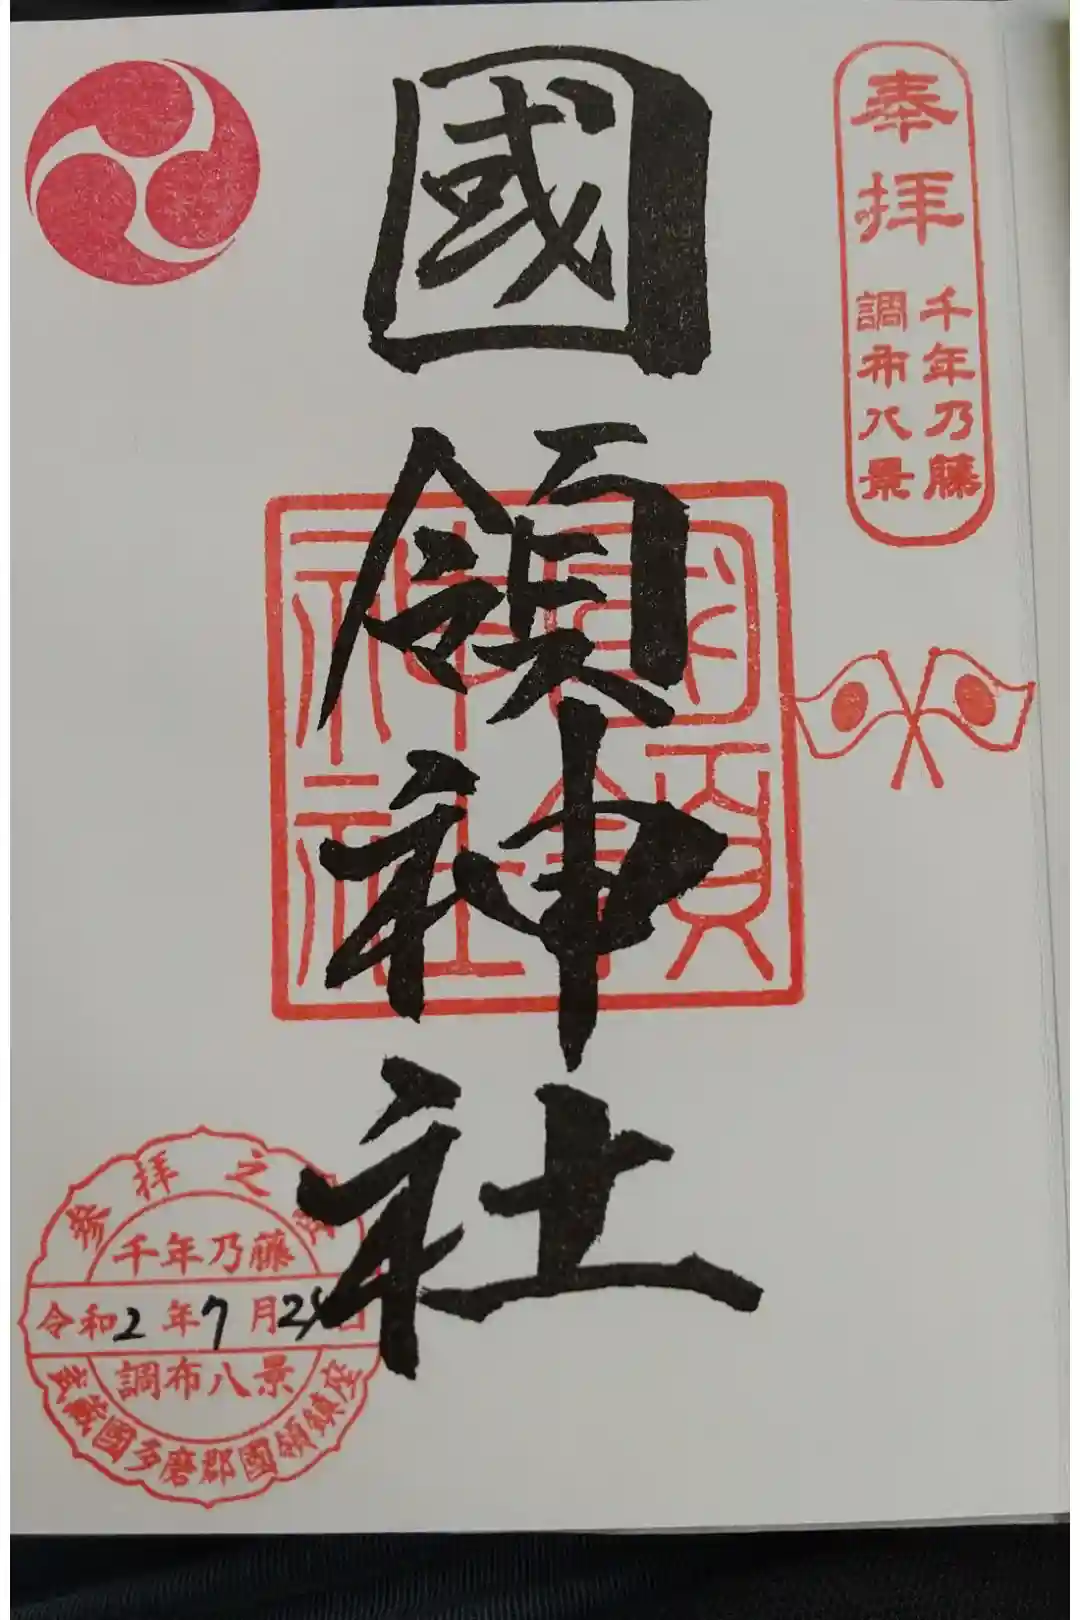 奉拝
千年乃藤
調布八景
國領神社
國領
神社
参拝之
千年乃藤
令和2年7月2日
調布八景
武蔵國多磨郡國領鎮座